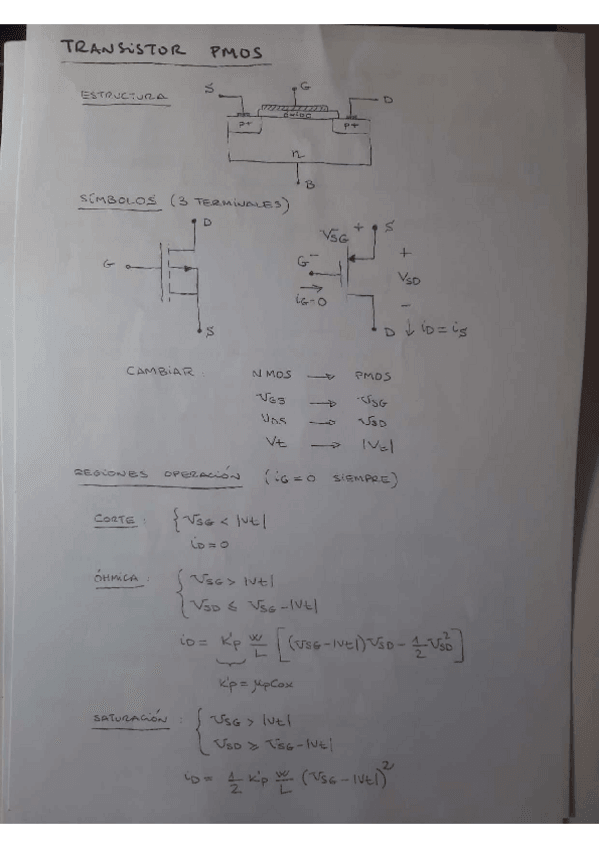 TRANSISTOR PMOS
ESTRUCTURA
S G D
P+ ÓXIDO P+
n
B
SÍMBOLOS (3 TERMINALES)
D
G
S
VSG + S
G - +
VSD
iG=0 -
D ↓ iD = iS
CAMBIAR: NMOS → PMOS
VGS → VSG
VDS → VSD
Vt → |Vt|
REGIONES OPERACIÓN (iG = 0 SIEMPRE)
CORTE: { VSG < |Vt|
iD = 0
ÓHMICA: { VSG > |Vt|
VSD ≤ VSG - |Vt|
iD = K'p W/L [(VSG - |Vt|) VSD - 1/2 VSD²]
K'p = μpCox
SATURACIÓN: { VSG > |Vt|
VSD ≥ VSG - |Vt|
iD = 1/2 K'p W/L (VSG - |Vt|)²